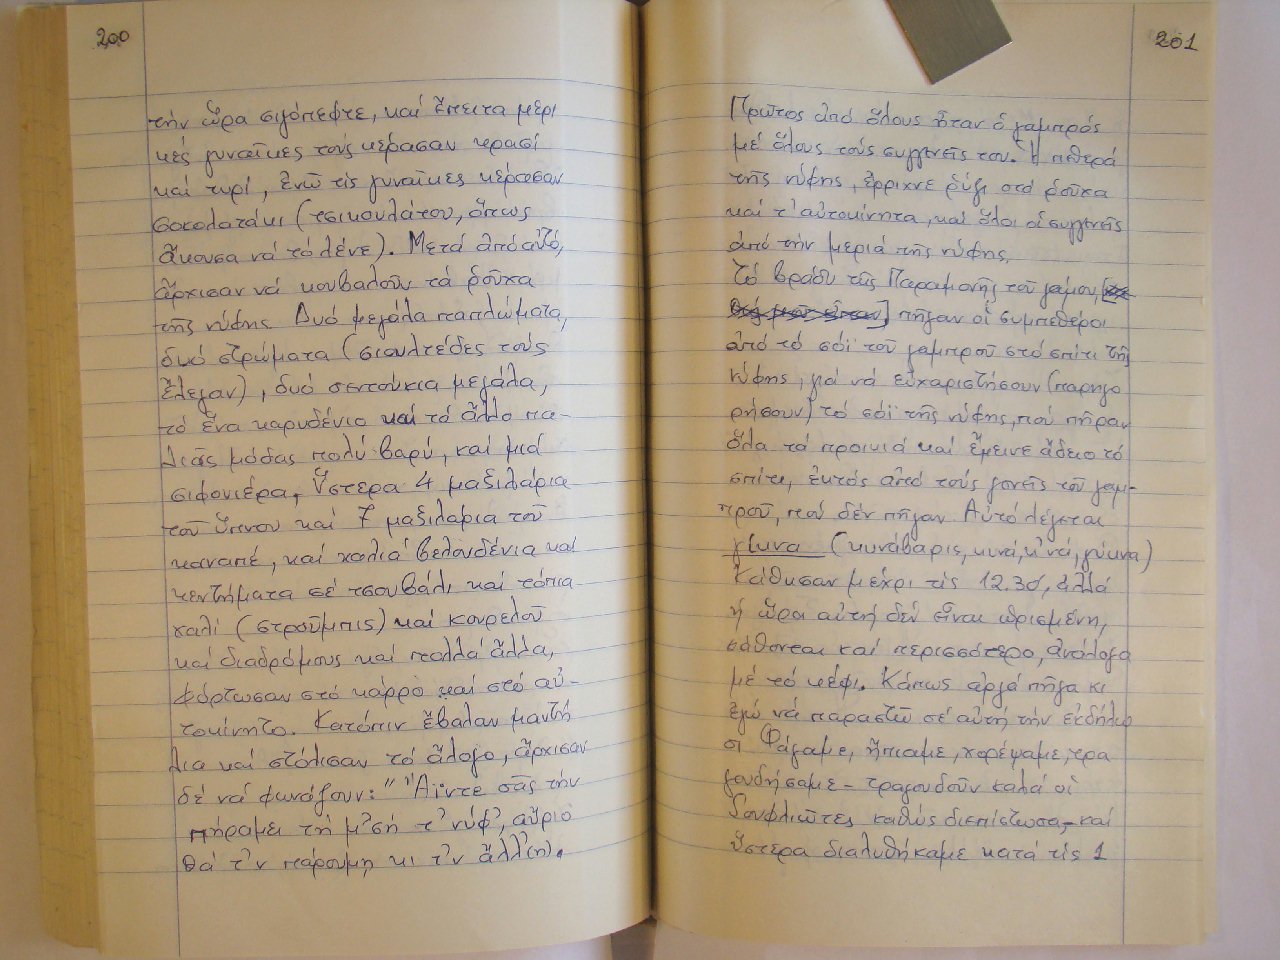 200
τήν ὥρα σιγόπεφτε, καί ἔπειτα μερι
κές γυναῖκες τούς κέρασαν κρασί
καί τυρί, ἐνῶ τίς γυναῖκες κέρασαν
σοκολατάκι (τσικουλάτου, ὅπως
ἄκουσα νά τό λένε). Μετά ἀπό αὐτό,
ἄρχισαν νά κουβαλοῦν τά ροῦχα
τῆς νύφης. Δυό μεγάλα παπλώματα,
δυό στρώματα (σιουλτέδες τούς
ἔλεγαν), δυό σεντούκια μεγάλα,
τό ἕνα καρυδένιο καί τό ἄλλο πα-
λιᾶς μόδας πολύ βαρύ, καί μιά
σιφονιέρα, ὕστερα 4 μαξιλάρια
τοῦ ὕπνου καί 7 μαξιλάρια τοῦ
καναπέ, καί χαλιά βελουδένια καί
κεντήματα σέ τσουβάλι καί τόπια
χαλί (στροῦμπις) καί κουρελοῦ
καί διαδρόμους καί πολλά ἄλλα,
φόρτωσαν στό κάρρο καί στό αὐ-
τοκίνητο. Κατόπιν ἔβαλαν μαντή
λια καί στόλισαν τό ἄλογο, ἄρχισαν
δέ νά φωνάζουν: "Ἄϊντε σᾶς τήν
πήραμε τή μ'σή τ' νύφ', αὔριο
θά τ'ν πάρουμη κι τ'ν ἄλλ'(η).
201
Πρῶτος ἀπό ὅλους ἦταν ὁ γαμπρός
μέ ὅλους τούς συγγενεῖς του. Ἡ πεθερά
τῆς νύφης, ἔρριχνε ρύζι στά ροῦχα
καί τ' αὐτοκίνητα, καί ὅλοι οἱ συγγενεῖς
ἀπό τήν μεριά τῆς νύφης.
Τό βράδυ τῆς Παραμονῆς τοῦ γάμου,
πῆγαν οἱ συμπεθέροι
ἀπό τό σόϊ τοῦ γαμπροῦ στό σπίτι τῆς
νύφης, γιά νά εὐχαριστήσουν (παρηγο
ρήσουν) τό σόϊ τῆς νύφης, πού πῆραν
ὅλα τά προικιά καί ἔμεινε ἄδειο τό
σπίτι, ἐκτός ἀπό τούς γονεῖς τοῦ γαμ-
προῦ, πού δέν πῆγαν. Αὐτό λέγεται
γίκνα (κυνάβαρις, κυνά, κ'νά, γύκνα)
Κάθησαν μέχρι τίς 12.30', ἀλλά
ἡ ὥρα αὐτή δέν εἶναι ὡρισμένη,
κάθονται καί περισσότερο, ἀνάλογα
μέ τό κέφι. Κάπως ἀργά πῆγα κι
ἐγώ νά παραστῶ σέ αὐτή τήν ἐκδήλω
ση Φάγαμε, ἤπιαμε, χορέψαμε, τρα
γουδήσαμε - τραγουδοῦν καλά οἱ
Σουφλιῶτες καθώς διεπίστωσα,- καί
ὕστερα διαλυθήκαμε κατά τίς 1